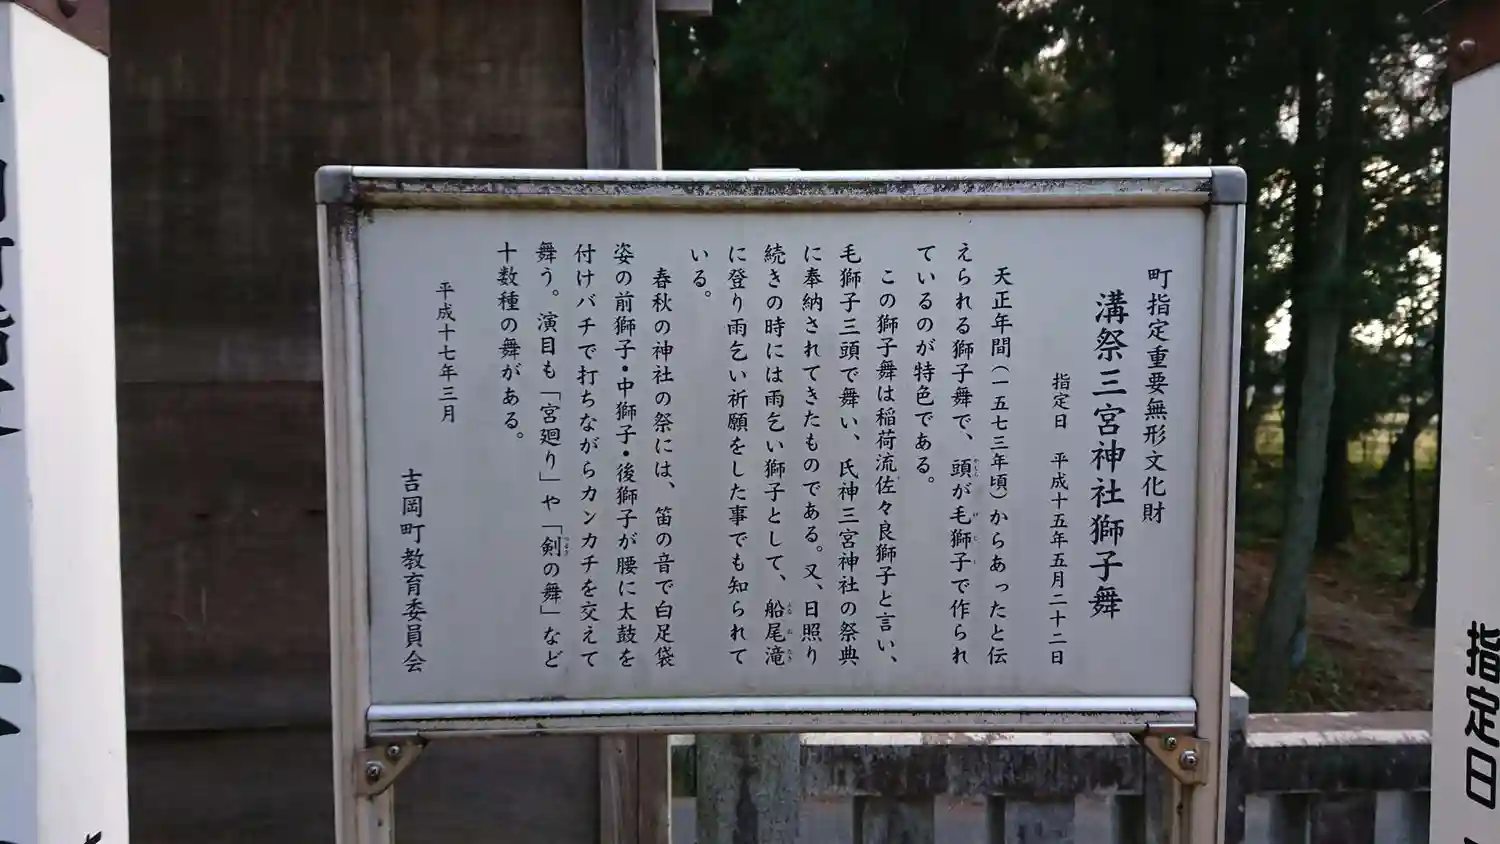 町指定重要無形文化財
溝祭三宮神社獅子舞
指定日 平成十五年五月二十二日
天正年間(一五七三年頃)からあったと伝
えられる獅子舞で、頭が毛獅子で作られ
ているのが特色である。
この獅子舞は稲荷流佐々良獅子と言い、
毛獅子三頭で舞い、氏神三宮神社の祭典
に奉納されてきたものである。又、日照り
続きの時には雨乞い獅子として、船尾滝
に登り雨乞い祈願をした事でも知られて
いる。
春秋の神社の祭には、笛の音で白足袋
姿の前獅子・中獅子・後獅子が腰に太鼓を
付けバチで打ちながらカンカチを交えて
舞う。演目も「宮廻り」や「剣の舞」など
十数種の舞がある。
平成十七年三月
吉岡町教育委員会
指定日